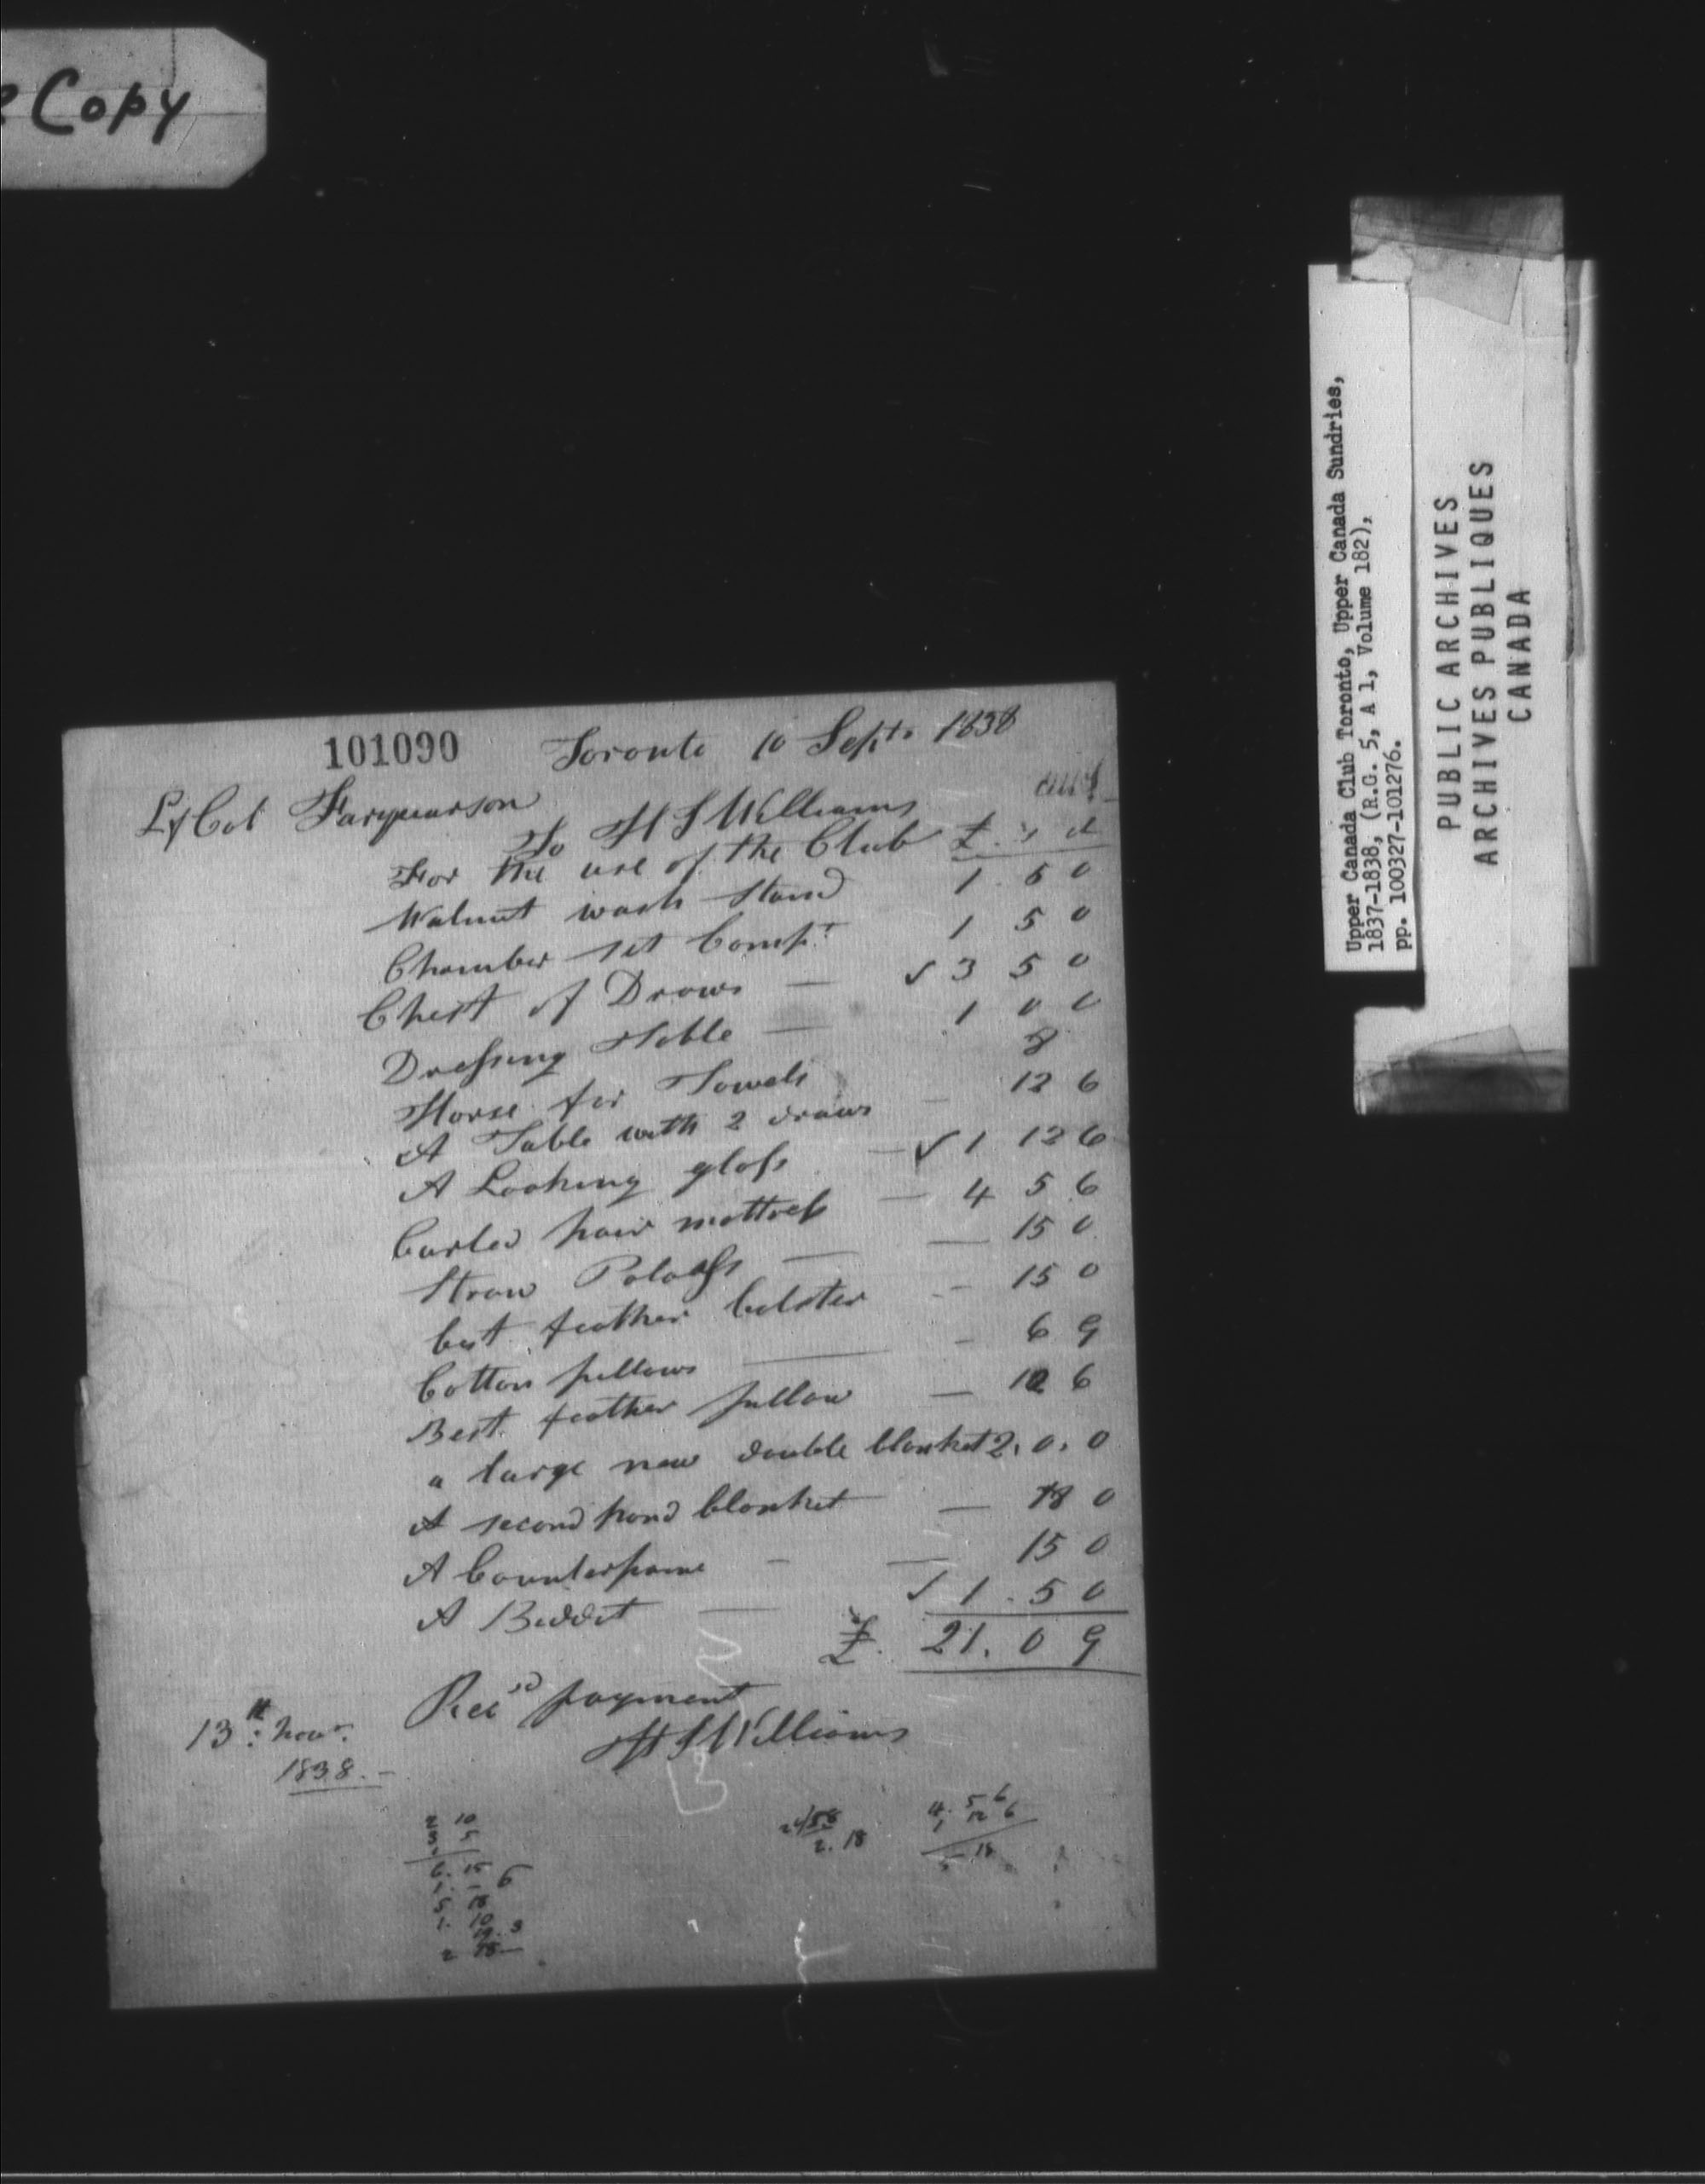 Copy
101090 Toronto 10 Septr 1838
Lt Col Farquarson
To H S Williams
For the use of the Club £. s d
Walnut wash stand 1. 5 0
Chamber set Compt 1 5 0
Chest of Draws — √ 3 5 0
Dressing Table — 1 0 0
Horse for Towels 8
A Table with 2 draws - 12 6
A Looking glass — √ 1 12 6
Curled hair mattress — 4 5 6
Straw Paloass — — 15 0
best feather bolster - - 15 0
Cotton pillows — - 6 9
Best feather pillow — 12 6
a large new double blanket 2. 0. 0
A second hand blanket — 18 0
A Counterpane - — 15 0
A Beddet — √ 1. 5 0
£. 21. 0 9
Recd payment
H S Williams
13th: novr.
1838. -
2 10
3 5
6. 15 6
2. 18
4. 5 6
1 12 6
5 18
Upper Canada Club Toronto, Upper Canada Sundries,
1837-1838, (R.G. 5, A 1, Volume 182),
pp. 100327-101276.
PUBLIC ARCHIVES
ARCHIVES PUBLIQUES
CANADA